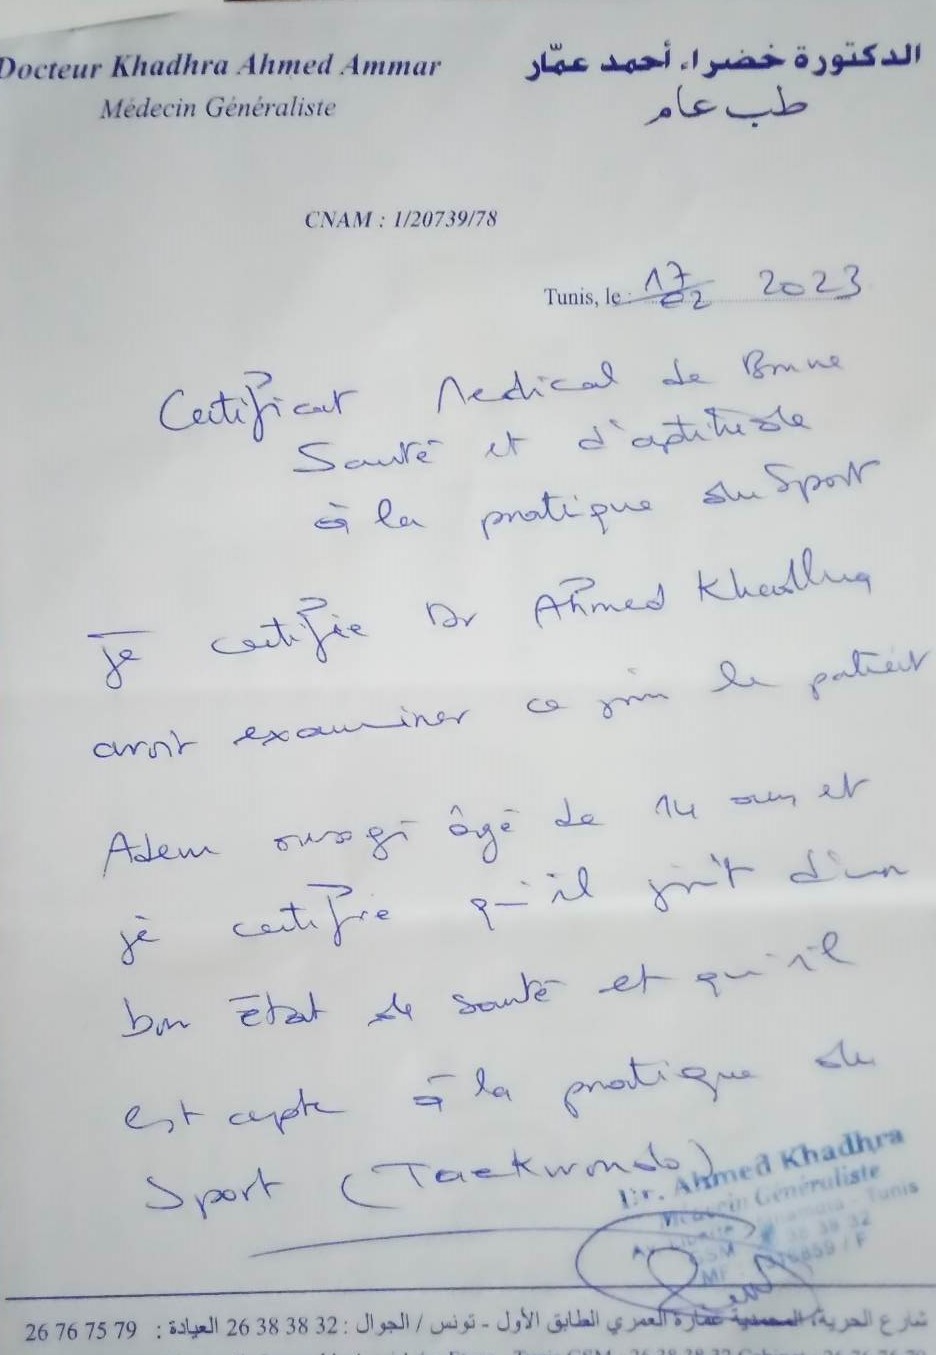 Docteur Khadhra Ahmed Ammar
الدكتورة خضراء أحمد عمّار
Médecin Généraliste
طب عام
CNAM : 1/20739/78
Tunis, le : 17/02 2023
Certificat Medical de Bonne
Santé et d'aptitude
à la pratique du Sport
Je certifie Dr Ahmed Khadhra
avoir examiner ce jour le patient
Adem âgé de 14 ans et
je certifie qu'il jouit d'un
bon état de santé et qu'il
est apte à la pratique du
Sport (Taekwondo)
Dr. Ahmed Khadhra
Médecin Généraliste
Tunis
GSM 38 38 32
MF
شارع الحرية، المحمدية عمارة العمري الطابق الأول - تونس / الجوال : 32 38 38 26 العيادة : 79 75 76 26